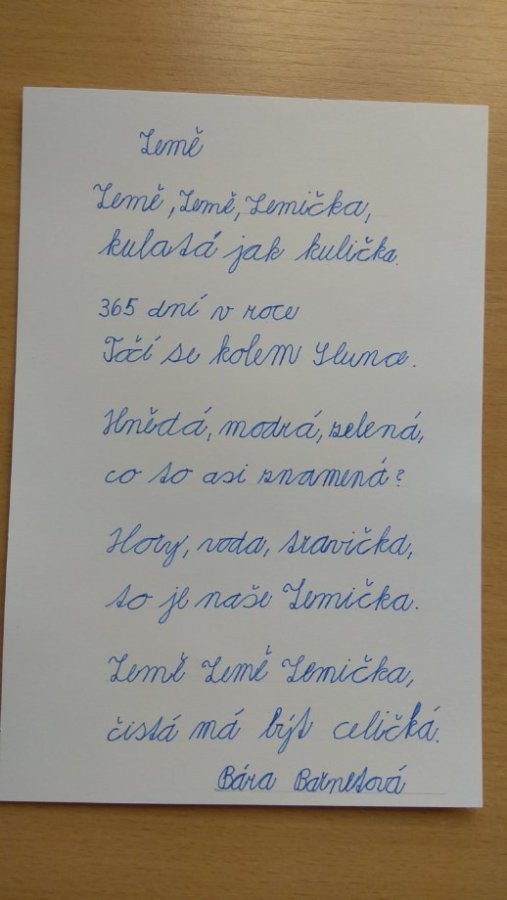 Země
Země, Země, Zemička,
kulatá jak kulička.
365 dní v roce
Točí se kolem Slunce.
Hnědá, modrá, zelená,
co to asi znamená?
Hory, voda, travička,
to je naše Zemička.
Země Země Zemička,
čistá má být celičká.
Bára Barnetová